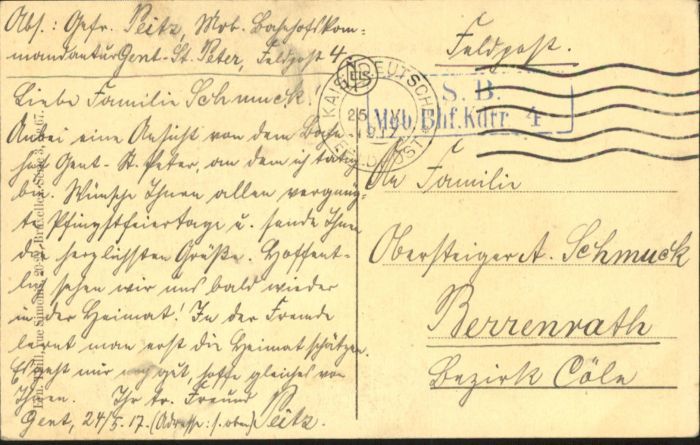 Abs.: Gefr. Peitz, Mob. Bahnhofskom-
mandantur Gent-St. Peter, Feldpost 4
Liebe Familie Schmuck!
Anbei eine Ansicht von dem Bahn-
hof Gent-St. Peter, an dem ich tätig
bin. Wünsche Ihnen allen vergnüg-
te Pfingstfeiertage u. sende Ihnen
die herzlichsten Grüße. Hoffent-
lich sehen wir uns bald wieder
in der Heimat! In der Fremde
lernt man erst die Heimat schätzen.
Es geht mir gut, hoffe gleiches von
Ihnen. Ihr tr. Freund
Gent, 24/5. 17. (Adresse: s. oben) Peitz.
Feldpost.
KAIS. DEUTSCHE
25
S. B.
Mob. Bhf. Kdtr. 4
An Familie
Obersteiger A. Schmuck
Berrenrath
Bezirk Cöln
NELS